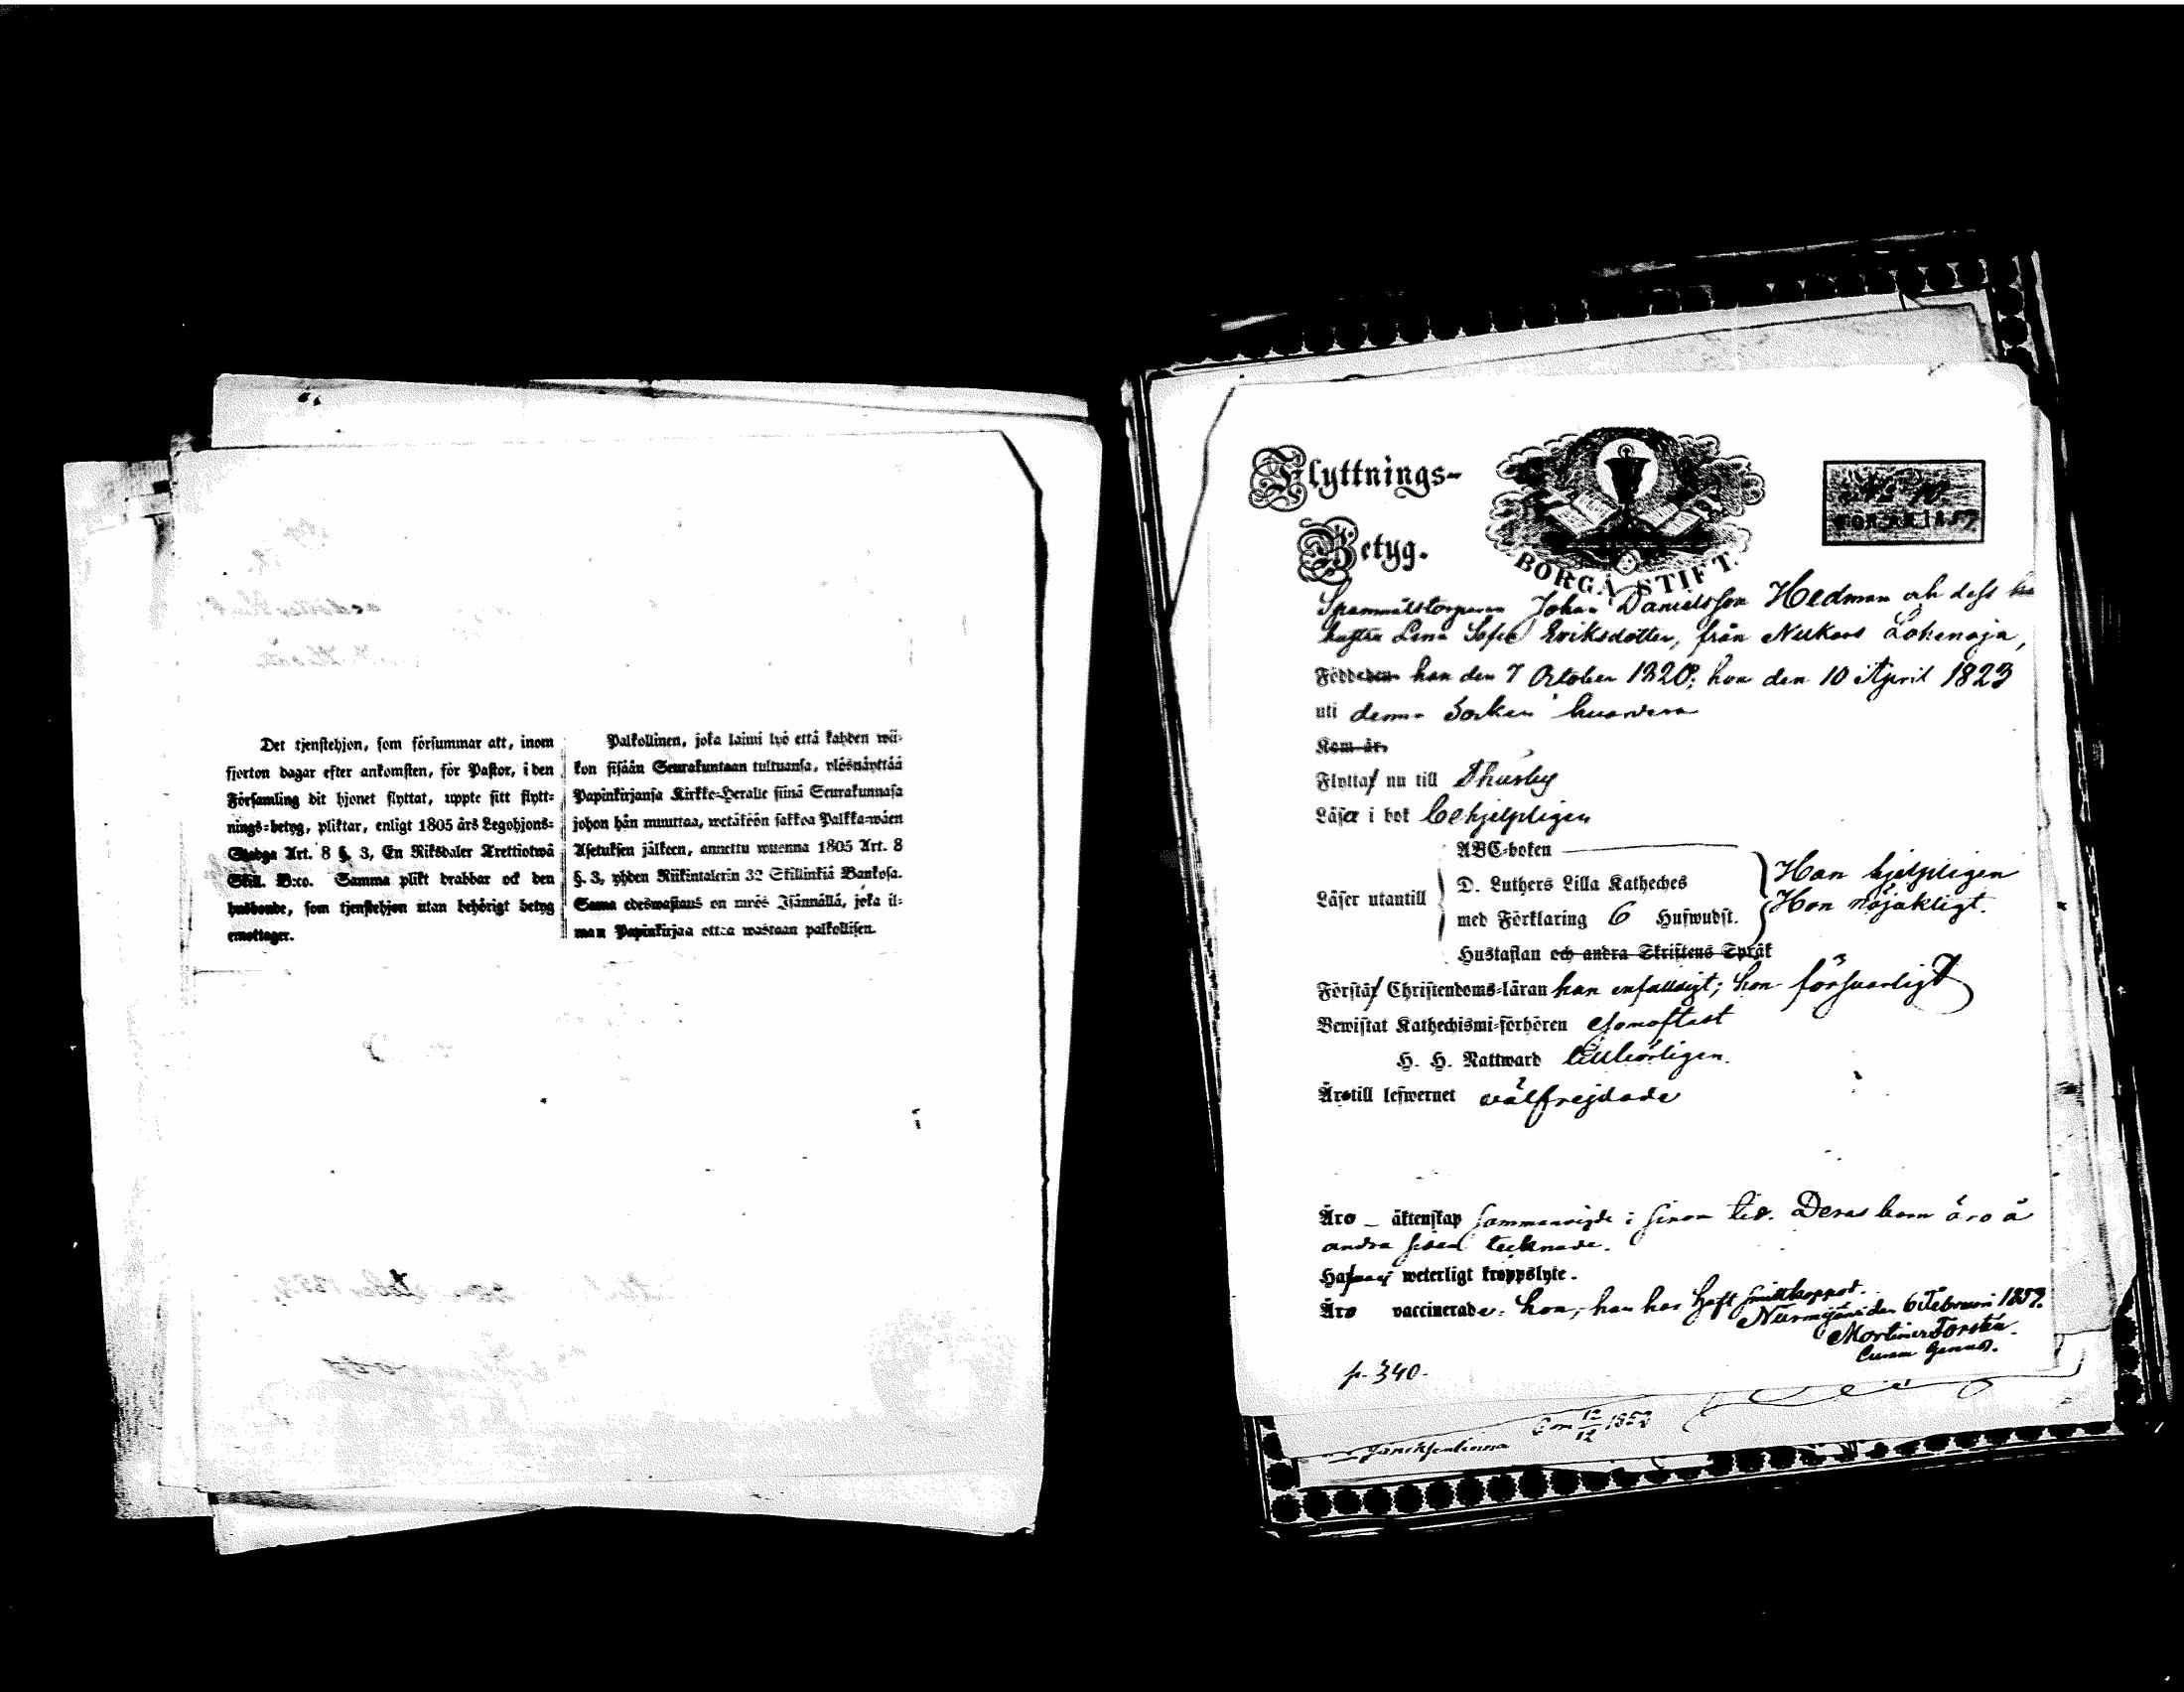 Det tjenstehjon, som försummar att, inom
fjorton dagar efter ankomsten, för Pastor, i den
Församling dit hjonet flyttat, uppte sitt flytt-
nings-betyg, pliktar, enligt 1805 års Legohjons-
Stadga Art. 8 §. 3, En Riksdaler Trettiotwå
Skill. B:co. Samma plikt drabbar ock den
husbonde, som tjenstehjon utan behörigt betyg
emottager.
Palkollinen, joka laimi lyö että kahden wii-
kon sisään Seurakuntaan tultuansa, ylösnäyttää
Papinkirjansa Kirkko-Heralle siinä Seurakunnasa
johon hän muuttaa, wetäköön sakkoa Palkka-wäen
Asetuksen jälkeen, annettu wuonna 1805 Art. 8
§. 3, yhden Riikintalerin 32 Skillinkiä Bankosa.
Sama edeswastaus on myös Isännällä, joka il-
man Papinkirjaa ottaa wastaan palkollisen.
Flyttnings-
Betyg.
BORGÅ STIFT.
№ 10
FÖR ÅR 1857
Johan Danielsson Hedman och dess
hustru Lena Sofia Eriksdotter, från Nukars Lokenoja,
Född den han den 7 October 1820; hon den 10 April 1823
uti denna Socken
Kom år,
Flytta nu till Thusby
Läsa i bok behjelpligen
ABC-boken
Läser utantill
D. Luthers Lilla Katheches
med Förklaring 6 Hufwudst.
Hustaflan och andra Skriftens Språk
Han hjelpligen
Hon nöjaktigt.
Förstå Christendoms-läran han enfalldigt; hon försvarligt
Bewistat Kathechismi-förhören som oftast
H. H. Nattward tillbörligen.
Äro till lefwernet välfrejdade
Äro äktenskap sammanvigde i sinom tid. Deras barn äro å
andra sidan tecknade.
Hafwa ej weterligt kroppslyte.
Äro vaccinerade: hon, han har haft smittkoppor.
Nurmijärvi den 6 Februari 1857.
Mortimer Forstén
p. 340.
12/12 1857